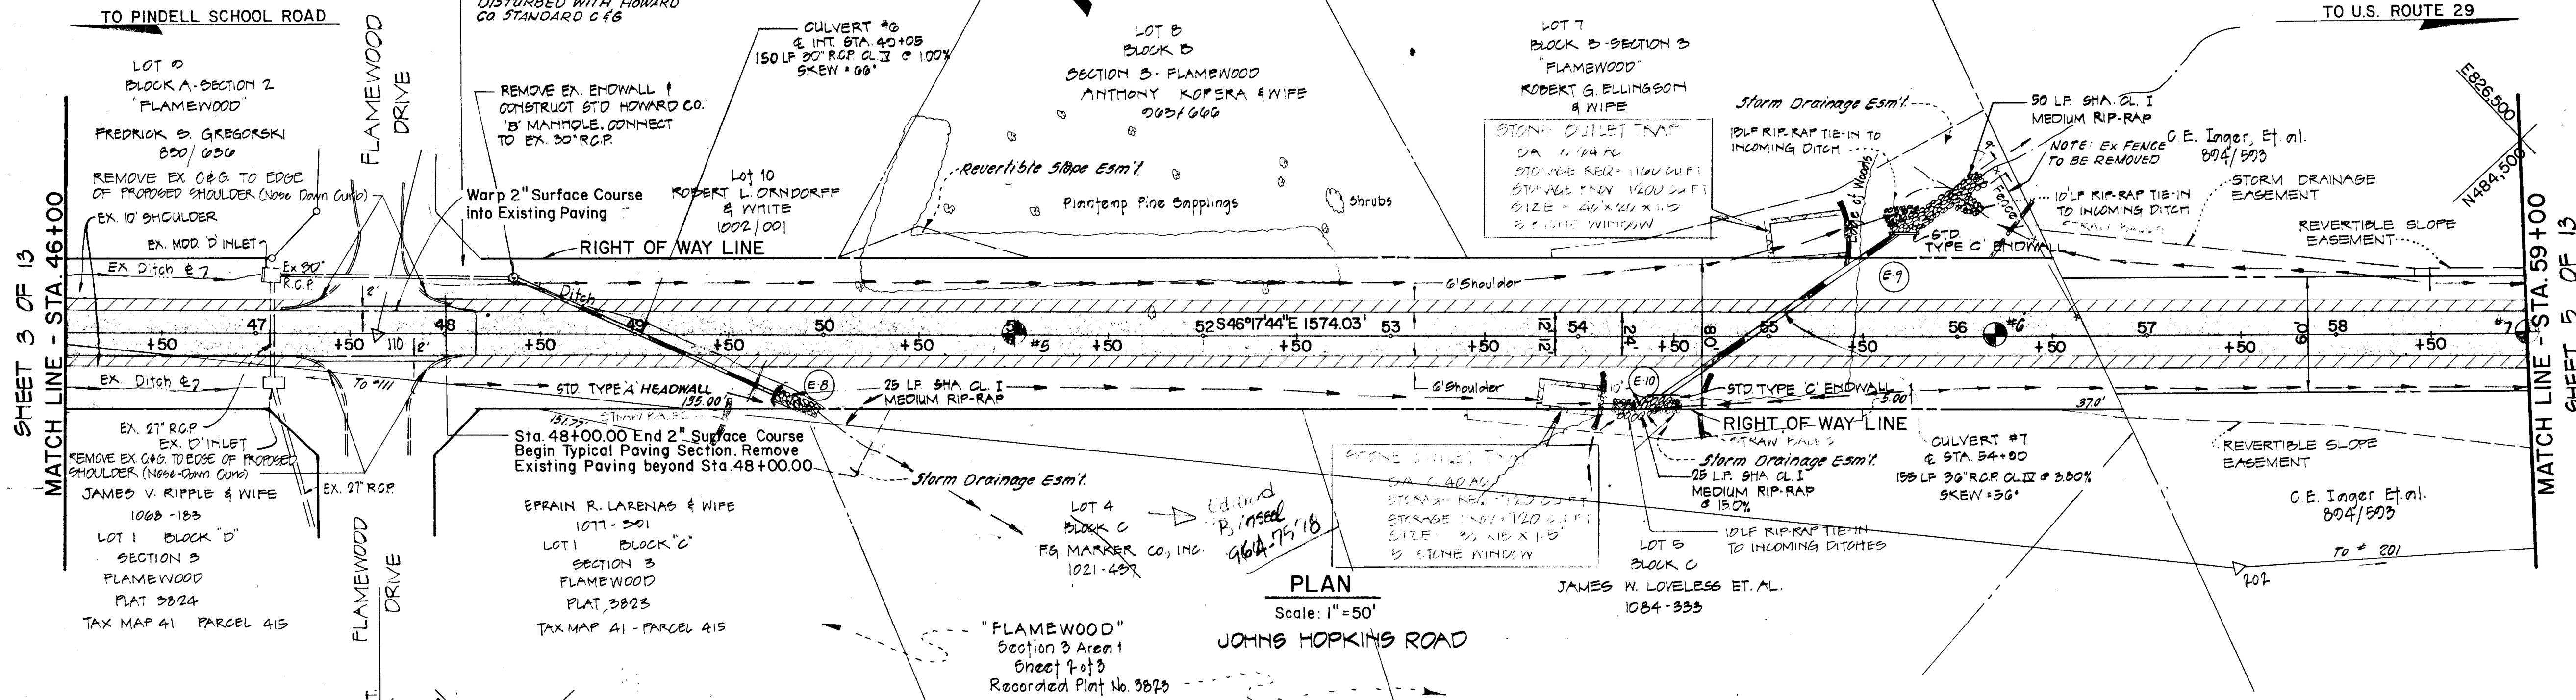 TO PINDELL SCHOOL ROAD
DISTURBED WITH HOWARD
CO. STANDARD C & G
TO U.S. ROUTE 29
FLAMEWOOD
DRIVE
BLOCK A-SECTION 2
"FLAMEWOOD"
FREDRICK S. GREGORSKI
830/636
REMOVE EX. C&G. TO EDGE
OF PROPOSED SHOULDER (Nose Down Curb)
EX. 10' SHOULDER
EX. MOD. 'D' INLET
EX. Ditch
Ex 30"
R.C.P.
SHEET 3 OF 13
MATCH LINE - STA. 46+00
CULVERT #6
℄ INT. STA. 49+05
150 LF 30" R.C.P. CL. IV @ 1.00%
SKEW = 66°
REMOVE EX. ENDWALL &
CONSTRUCT STD HOWARD CO.
'B' MANHOLE. CONNECT
TO EX. 30" R.C.P.
Warp 2" Surface Course
into Existing Paving
Lot 10
ROBERT L. ORNDORFF
& WHITE
1002/001
RIGHT OF WAY LINE
LOT 8
BLOCK B
SECTION 3 - FLAMEWOOD
ANTHONY KOPERA & WIFE
963/666
Revertible Slope Esm't.
Plantemp Pine Sapplings
Shrubs
LOT 7
BLOCK B-SECTION 3
"FLAMEWOOD"
ROBERT G. ELLINGSON
& WIFE
STONE OUTLET TRAP
STORAGE REQ = 1160 CU FT
STORAGE PROV 1200 CU FT
SIZE = 40' X 20 X 1.5
5' STONE WINDOW
Storm Drainage Esm't.
RIP-RAP TIE-IN TO
INCOMING DITCH
Line of Woods
50 LF. SHA. CL. I
MEDIUM RIP-RAP
NOTE: EX FENCE
TO BE REMOVED
Ex Fence
C.E. Inger, Et. al.
894/593
10' LF RIP-RAP TIE-IN
TO INCOMING DITCH
STRAW BALES
STORM DRAINAGE
EASEMENT
REVERTIBLE SLOPE
EASEMENT
STD.
TYPE 'C' ENDWALL
E-9
E826,500
N484,500
MATCH LINE - STA. 59+00
SHEET 5 OF 13
Ditch
6' Shoulder
2'
47
48
49
50
52
S46°17'44"E 1574.03'
53
54
55
56
#6
57
58
#7
+50
+50
110
2'
+50
+50
+50
#5
+50
+50
12'
12'
24'
+50
80'
+50
+50
+50
EX. Ditch
To #111
STD. TYPE 'A' HEADWALL
135.00'
STRAW BALES
E-8
25 LF. SHA. CL. I
MEDIUM RIP-RAP
6' Shoulder
10'
E-10
STD. TYPE 'C' ENDWALL
5.00'
37.0'
RIGHT OF WAY LINE
STRAW BALES
EX. 27" R.C.P
EX. 'D' INLET
REMOVE EX. C&G. TO EDGE OF PROPOSED
SHOULDER (Nose-Down Curb)
EX. 27" R.C.P.
JAMES V. RIPPLE & WIFE
1068-183
LOT 1 BLOCK "D"
SECTION 3
FLAMEWOOD
PLAT 3824
TAX MAP 41 PARCEL 415
FLAMEWOOD
DRIVE
Sta. 48+00.00 End 2" Surface Course
Begin Typical Paving Section. Remove
Existing Paving beyond Sta. 48+00.00
EFRAIN R. LARENAS & WIFE
LOT 1 BLOCK "C"
SECTION 3
FLAMEWOOD
PLAT 3823
TAX MAP 41 - PARCEL 415
Storm Drainage Esm't.
LOT 4
BLOCK C
F.G. MARKER CO., INC.
1021-437
Edward
STONE OUTLET TRAP
SIZE
5' STONE WINDOW
Storm Drainage Esm't.
25 L.F. SHA. CL. I
MEDIUM RIP-RAP
@ 15.0%
CULVERT #7
℄ STA. 54+90
155 LF 36" R.C.P. CL. IV @ 3.80%
SKEW = 56°
10 LF RIP-RAP TIE-IN
TO INCOMING DITCHES
LOT 5
BLOCK C
JAMES W. LOVELESS ET. AL.
1084-333
REVERTIBLE SLOPE
EASEMENT
C.E. Inger Et. al.
894/593
To # 201
202
PLAN
Scale: 1"=50'
JOHNS HOPKINS ROAD
"FLAMEWOOD"
Section 3 Area 1
Sheet 2 of 3
Recorded Plat No. 3823